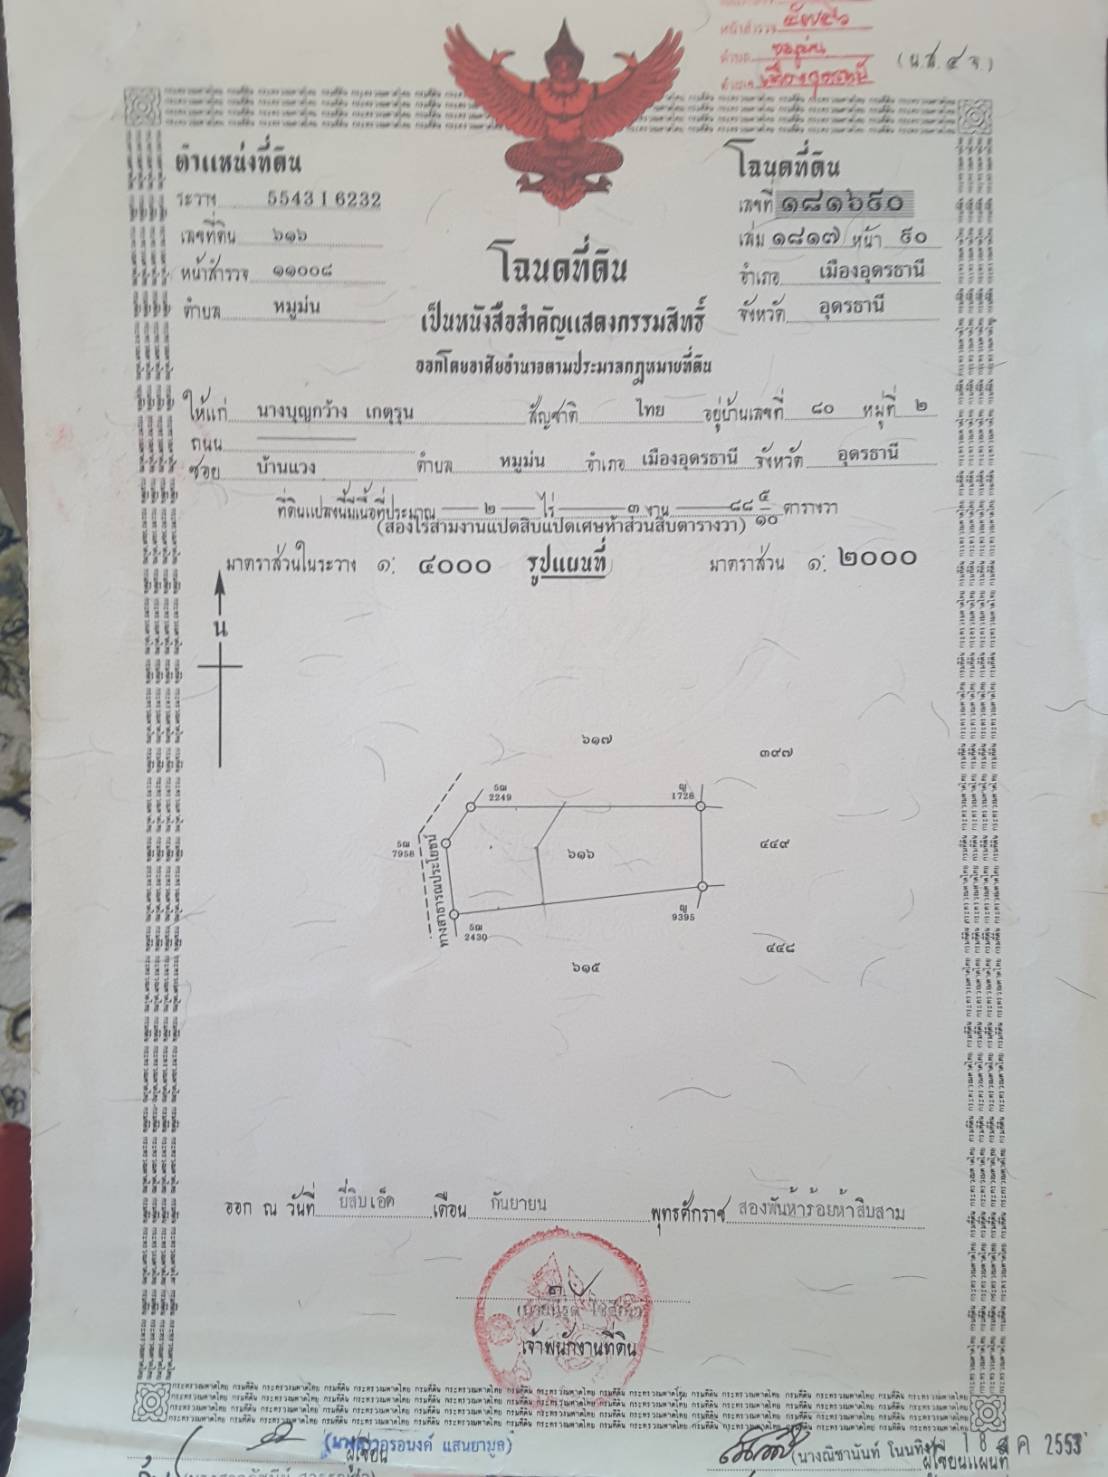 หน้าสำรวจ
ตำบล หมูม่น
อำเภอ เมืองอุดรธานี
(น.ส.๔ จ.)
ตำแหน่งที่ดิน
โฉนดที่ดิน
ระวาง 5543 I 6232
เลขที่ ๑๘๑๖๙๐
เลขที่ดิน ๖๑๖
เล่ม ๑๘๑๗ หน้า ๙๐
หน้าสำรวจ ๑๑๐๐๘
อำเภอ เมืองอุดรธานี
ตำบล หมูม่น
จังหวัด อุดรธานี
โฉนดที่ดิน
เป็นหนังสือสำคัญแสดงกรรมสิทธิ์
ออกโดยอาศัยอำนาจตามประมวลกฎหมายที่ดิน
ให้แก่ นางบุญกว้าง เกตุรุน สัญชาติ ไทย อยู่บ้านเลขที่ ๘๐ หมู่ที่ ๒
ถนน
ซอย บ้านแวง ตำบล หมูม่น อำเภอ เมืองอุดรธานี จังหวัด อุดรธานี
ที่ดินแปลงนี้มีเนื้อที่ประมาณ ๒ ไร่ ๓ งาน ๘๘ ๕/๑๐ ตารางวา
(สองไร่สามงานแปดสิบแปดเศษห้าส่วนสิบตารางวา)
มาตราส่วนในระวาง ๑: ๔๐๐๐ รูปแผนที่ มาตราส่วน ๑: ๒๐๐๐
น
๖๑๗
๓๙๗
5ฒ
2249
ญ
1728
5ฒ
7958
๖๑๖
๔๔๙
ทางสาธารณประโยชน์
5ฒ
2430
ญ
9395
๔๔๘
๖๑๕
ออก ณ วันที่ ยี่สิบเอ็ด เดือน กันยายน พุทธศักราช สองพันห้าร้อยห้าสิบสาม
เจ้าพนักงานที่ดิน
กระทรวงมหาดไทย กรมที่ดิน กระทรวงมหาดไทย กรมที่ดิน
(นางสาวอรอนงค์ แสนยามูล)
ผู้เขียน
(นางณิชานันท์
ผู้เขียนแผนที่